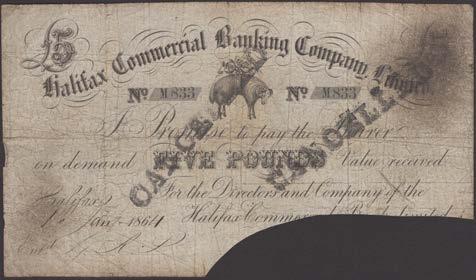 £5
Halifax Commercial Banking Company Limited
No M833 No M833
I Promise to pay the Bearer
on demand FIVE POUNDS Value received
Halifax For the Directors and Company of the
1 Jany 1864 Halifax Commercial Bank Limited
Entd
CANCELLED
CANCELLED